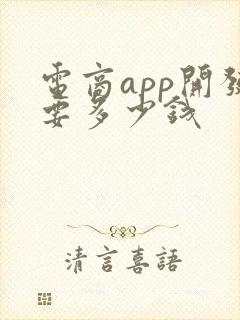 電商app開發
要多少錢
清言喜語